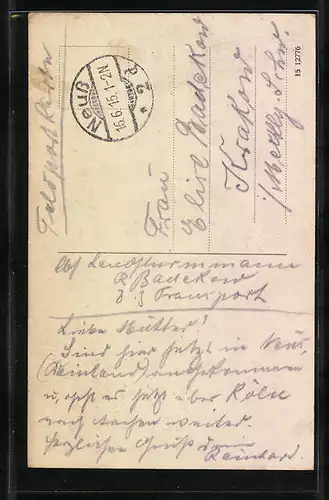 Feldpostkarten
Neuß
16.6.15. 1-2N
* 2 a
15 12776
Frau
Elise Badekow
Krakow
i/Meckl. Schw.
Abs Landsturmmann
R Badekow
z Z Transport
Liebe Mutter!
Sind hier jetzt in Neus,
(Rheinland) angekommen
u, geht es jetzt über Köln
nach Aachen weiter.
Herzlichen Gruß dein
Reinhard.